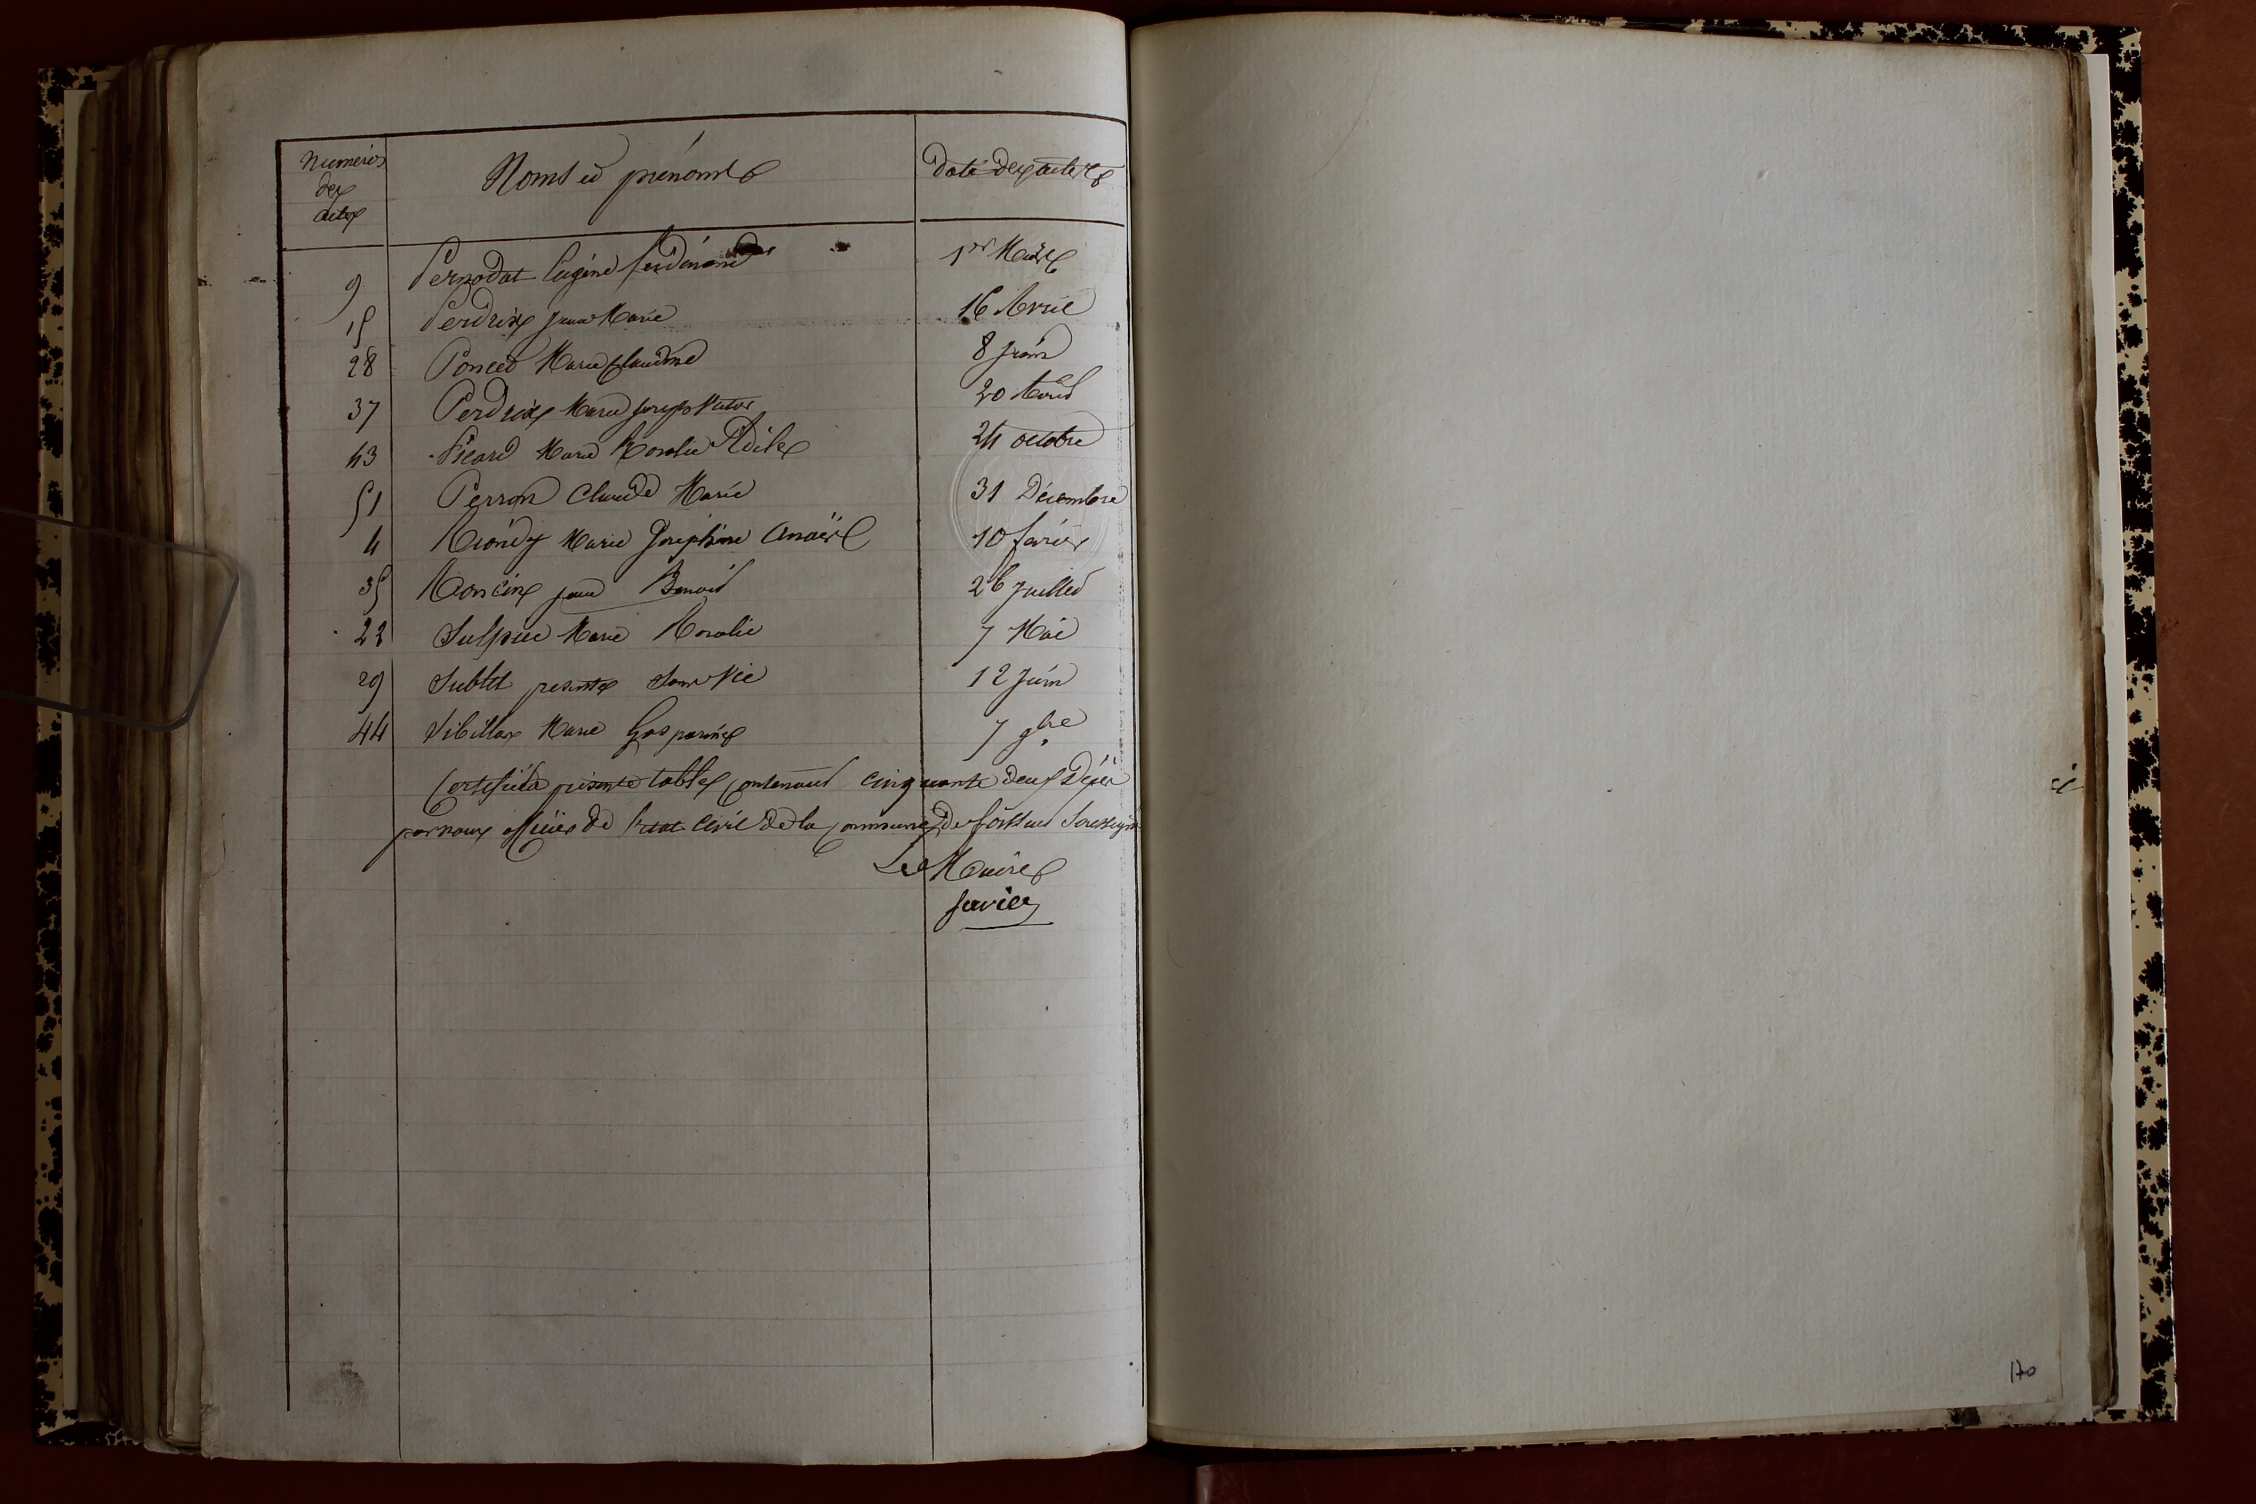 Numéros des actes Noms et prénoms Date des actes
9 Pernodat Eugène ferdinand 1er Mars
15 Perdrix jean Marie 16 Avril
28 Poncet Marie Claudine 8 juin
37 Perdrix Marie joseph Victor 20 Aout
43 Picard Marie Rosalie Adile 24 octobre
51 Perron Claude Marie 31 Décembre
4 Marie Joséphine Anaïs 10 févrièr
35 Roncin jean Benoit 26 juillet
22 Sulpice Marie Rosalie 7 Mai
29 Sublet présenté sans vie 12 juin
44 Vibillar Marie Gasparine 7 9bre
Certifié la présente table contenant cinquante deux Décès
par nous officier de l'etat civil de la commune de
Le Maire
Javier
170